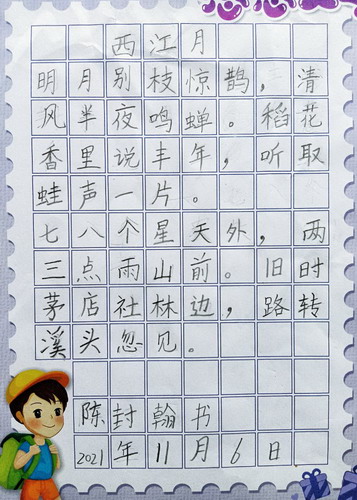 西江月
明月别枝惊鹊，清
风半夜鸣蝉。稻花
香里说丰年，听取
蛙声一片。
七八个星天外，两
三点雨山前。旧时
茅店社林边，路转
溪头忽见。
陈封翰书
2021年11月6日